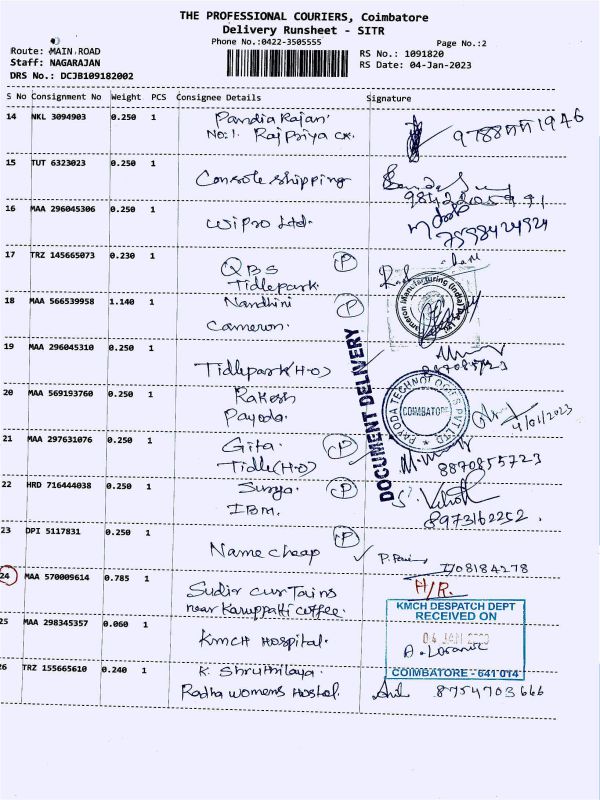 THE PROFESSIONAL COURIERS, Coimbatore
Delivery Runsheet - SITR
Phone No.:0422-3505555
Page No.:2
Route: MAIN ROAD
RS No.: 1091820
Staff: NAGARAJAN
RS Date: 04-Jan-2023
DRS No.: DCJB109182002
S No Consignment No Weight PCS Consignee Details Signature
14 NKL 3094903 0.250 1 Pandia Rajan
No:1. Rajpriya
15 TUT 6323023 0.250 1
Console shipping
16 MAA 296045306 0.250 1
Wipro Ltd.
7598424924
17 TRZ 145665073 0.230 1 QBS P
Tidlepark
18 MAA 566539958 1.140 1 Nandhini P
Cameron.
Cameron Manufacturing (India) Pvt. Ltd.
19 MAA 296045310 0.250 1
Tidlepark(H-O)
DOCUMENT DELIVERY
20 MAA 569193760 0.250 1 Rakesh
Payoda.
PAYODA TECHNOLOGIES PVT LTD
COIMBATORE
4/01/2023
21 MAA 297631076 0.250 1 Gita. P
Tidle(H-O)
8870855723
22 HRD 716444038 0.250 1 Surya P
IBM.
8973162252.
23 DPI 5117831 0.250 1 P
Name cheap
24 MAA 570009614 0.785 1 H/R.
Sudir curTains
near Karuppatti coffee.
25 MAA 298345357 0.060 1
KMCH HOSPITAL.
KMCH DESPATCH DEPT
RECEIVED ON
04 JAN
COIMBATORE - 641 014
26 TRZ 155665610 0.240 1 K. Shruthilaya.
Radha womens Hostel. 8754703666